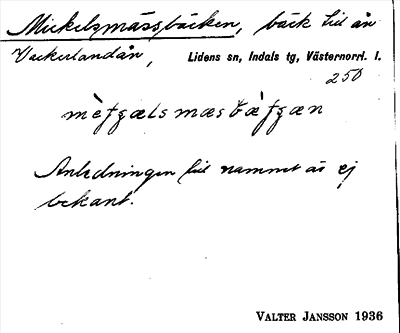 Mickelsmässbäcken, bäck till ån
Vackerlandån, Lidens sn, Indals tg, Västernorrl. l.
250
mèʃgælsmæsbæ̀ʃgæn
Anledningen till namnet är ej
bekant.
VALTER JANSSON 1936